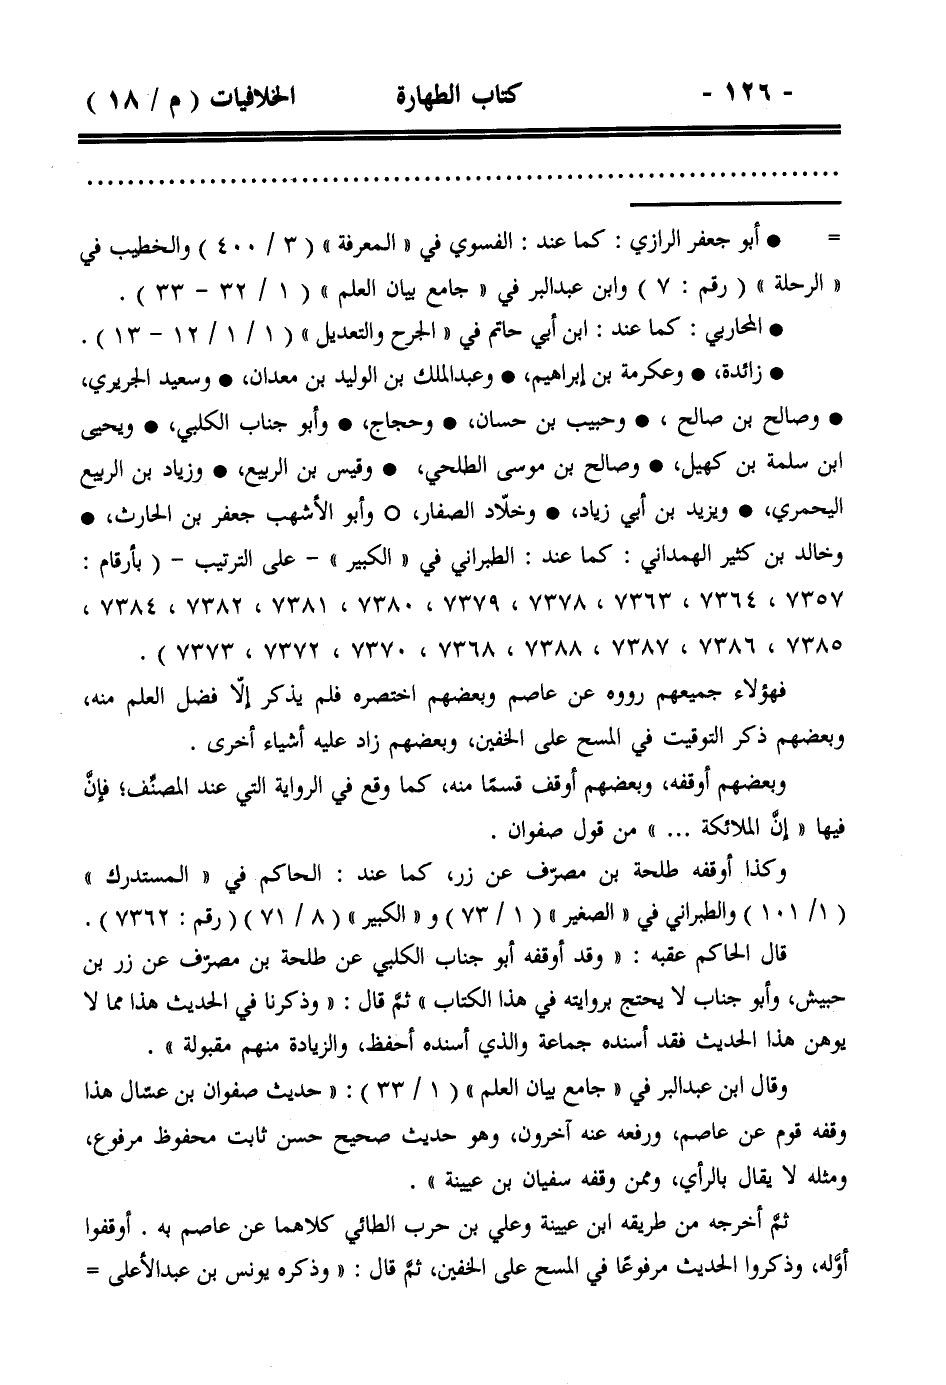 - ١٢٦ - كتاب الطهارة الخلافيات ( م / ١٨ )
= ● أبو جعفر الرازي : كما عند : الفسوي في « المعرفة » ( ٣ / ٤٠٠ ) والخطيب في
« الرحلة » ( رقم : ٧ ) وابن عبدالبر في « جامع بيان العلم » ( ١ / ٣٢ - ٣٣ ) .
● المحاربي : كما عند : ابن أبي حاتم في « الجرح والتعديل » ( ١ / ١ / ١٢ - ١٣ ) .
● زائدة، ● وعكرمة بن إبراهيم، ● وعبدالملك بن الوليد بن معدان، ● وسعيد الجريري،
● وصالح بن صالح ، ● وحبيب بن حسان، ● وحجاج، ● وأبو جناب الكلبي، ● ويحيى
ابن سلمة بن كهيل، ● وصالح بن موسى الطلحي، ● وقيس بن الربيع، ● وزياد بن الربيع
اليحمري، ● ويزيد بن أبي زياد، ● وخلّاد الصفار، ○ وأبو الأشهب جعفر بن الحارث، ●
وخالد بن كثير الهمداني : كما عند : الطبراني في « الكبير » - على الترتيب - ( بأرقام :
٧٣٥٧ ، ٧٣٦٤ ، ٧٣٦٣ ، ٧٣٧٨ ، ٧٣٧٩ ، ٧٣٨٠ ، ٧٣٨١ ، ٧٣٨٢ ، ٧٣٨٤ ،
٧٣٨٥ ، ٧٣٨٦ ، ٧٣٨٧ ، ٧٣٨٨ ، ٧٣٦٨ ، ٧٣٧٠ ، ٧٣٧٢ ، ٧٣٧٣ ) .
فهؤلاء جميعهم رووه عن عاصم وبعضهم اختصره فلم يذكر إلّا فضل العلم منه،
وبعضهم ذكر التوقيت في المسح على الخفين، وبعضهم زاد عليه أشياء أخرى .
وبعضهم أوقفه، وبعضهم أوقف قسمًا منه، كما وقع في الرواية التي عند المصنِّف؛ فإنَّ
فيها « إنَّ الملائكة ... » من قول صفوان .
وكذا أوقفه طلحة بن مصرّف عن زر، كما عند : الحاكم في « المستدرك »
( ١/ ١٠١ ) والطبراني في « الصغير » ( ١ / ٧٣ ) و « الكبير » ( ٨ / ٧١ ) ( رقم : ٧٣٦٢ ) .
قال الحاكم عقبه : « وقد أوقفه أبو جناب الكلبي عن طلحة بن مصرّف عن زر بن
حبيش، وأبو جناب لا يحتج بروايته في هذا الكتاب » ثمَّ قال : « وذكرنا في الحديث هذا مما لا
يوهن هذا الحديث فقد أسنده جماعة والذي أسنده أحفظ، والزيادة منهم مقبولة » .
وقال ابن عبدالبر في « جامع بيان العلم » ( ١ / ٣٣ ) : « حديث صفوان بن عسّال هذا
وقفه قوم عن عاصم، ورفعه عنه آخرون، وهو حديث صحيح حسن ثابت محفوظ مرفوع،
ومثله لا يقال بالرأي، وممن وقفه سفيان بن عيينة » .
ثمَّ أخرجه من طريقه ابن عيينة وعلي بن حرب الطائي كلاهما عن عاصم به . أوقفوا
أوَّله، وذكروا الحديث مرفوعًا في المسح على الخفين، ثمَّ قال : « وذكره يونس بن عبدالأعلى =